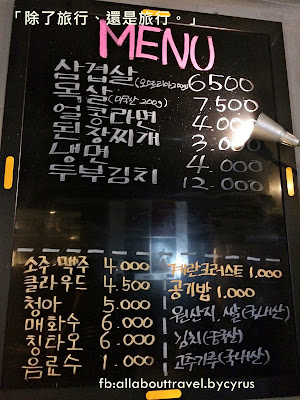 「除了旅行、還是旅行。」
MENU
삼겹살(오스트리아200g) 6500
목살(미국산200g) 7.500
얼큰라면 4.000
된장찌개 3.000
냉면 4.000
두부김치 12.000
소주.맥주 4.000
클라우드 4.500
청아 5.000
매화수 6.000
칭타오 6.000
음료수 1.000
계란크러스트 1.000
공기밥 1.000
원산지.쌀(국내산)
김치(중국산)
고추가루(국내산)
fb:allabouttravel.bycyrus